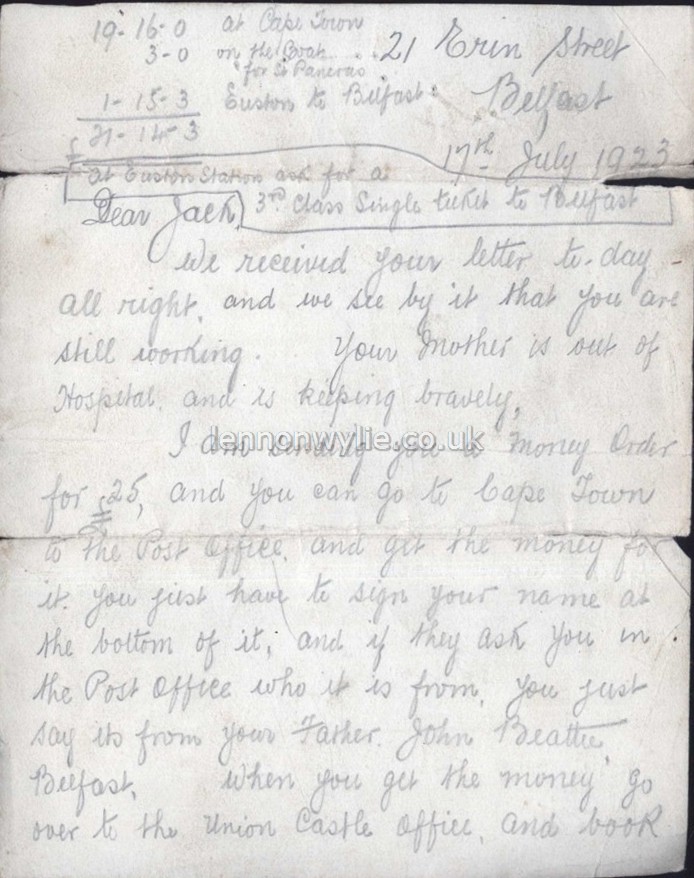 19-16-0 at Cape Town
3-0 on the Boat . . 21 Erin Street
"for St Pancras
1-15-3 Euston to Belfast. Belfast
£21-14-3
17th July 1923
at Euston Station ask for a
Dear Jack, 3rd Class Single ticket to Belfast
We received your letter to-day
all right, and we see by it that you are
still working. Your Mother is out of
Hospital. and is keeping bravely,
I am sending you a Money Order
lennonwylie.co.uk
for £25, and you can go to Cape Town
to the Post Office, and get the money for
it. you just have to sign your name at
the bottom of it, and if they ask you in
the Post Office who it is from, you just
say its from your Father. John Beattie,
Belfast. When you get the money go
over to the Union Castle Office, and book